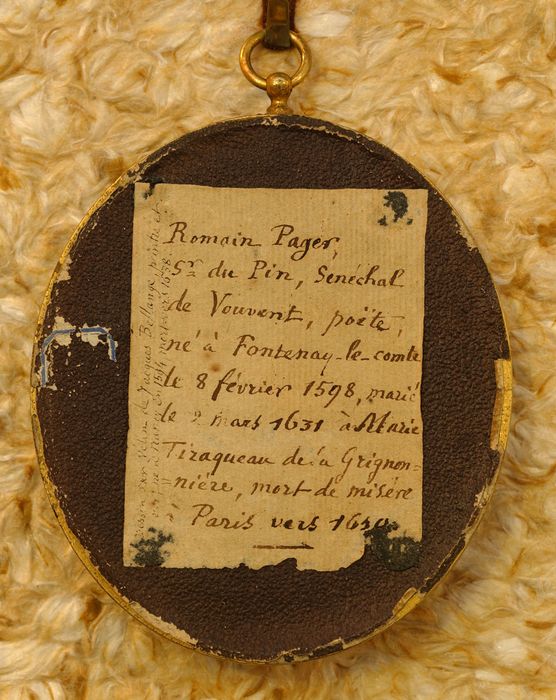 Romain Pager,
Sr du Pin, Sénéchal
de Vouvent, poëte,
né à Fontenay-le-comte
le 8 février 1598, marié
le 2 mars 1631 à Marie
Tiraqueau de la Grignon=
nière, mort de misère
à Paris vers 1650.
de Jacques Bellange, peintre et
né à Nancy en 1594, mort vers 1638